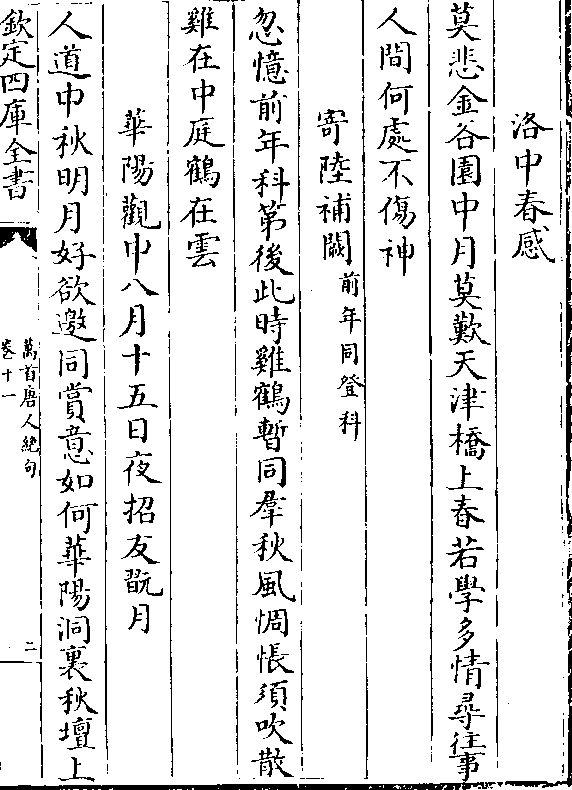 洛中春感
莫悲金谷園中月莫歎天津橋上春若學多情尋往事
人間何處不傷神
寄陸補闕前年同登科
忽憶前年科第後此時雞鶴暫同羣秋風惆悵須吹散
雞在中庭鶴在雲
華陽觀中八月十五日夜招友翫月
人道中秋明月好欲邀同賞意如何華陽洞裏秋壇上
欽定四庫全書
萬首唐人絶句
卷十一
二